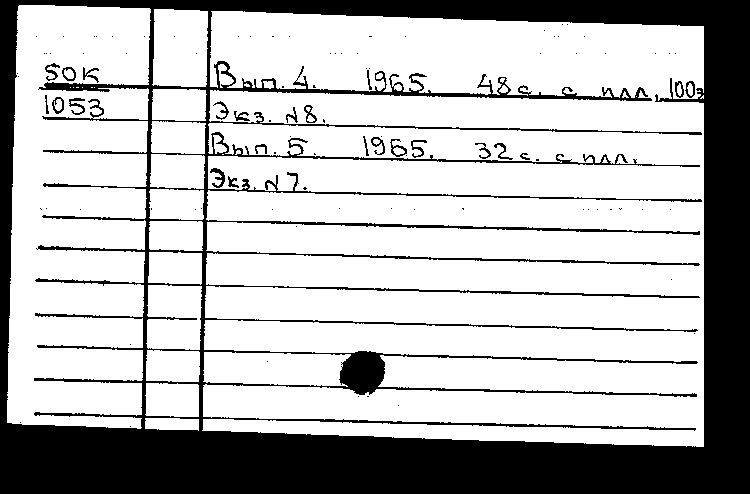 50К Вып. 4. 1965. 48 с. с илл., 100э
1053 Экз. №8.
Вып. 5. 1965. 32 с. с илл.
Экз. №7.